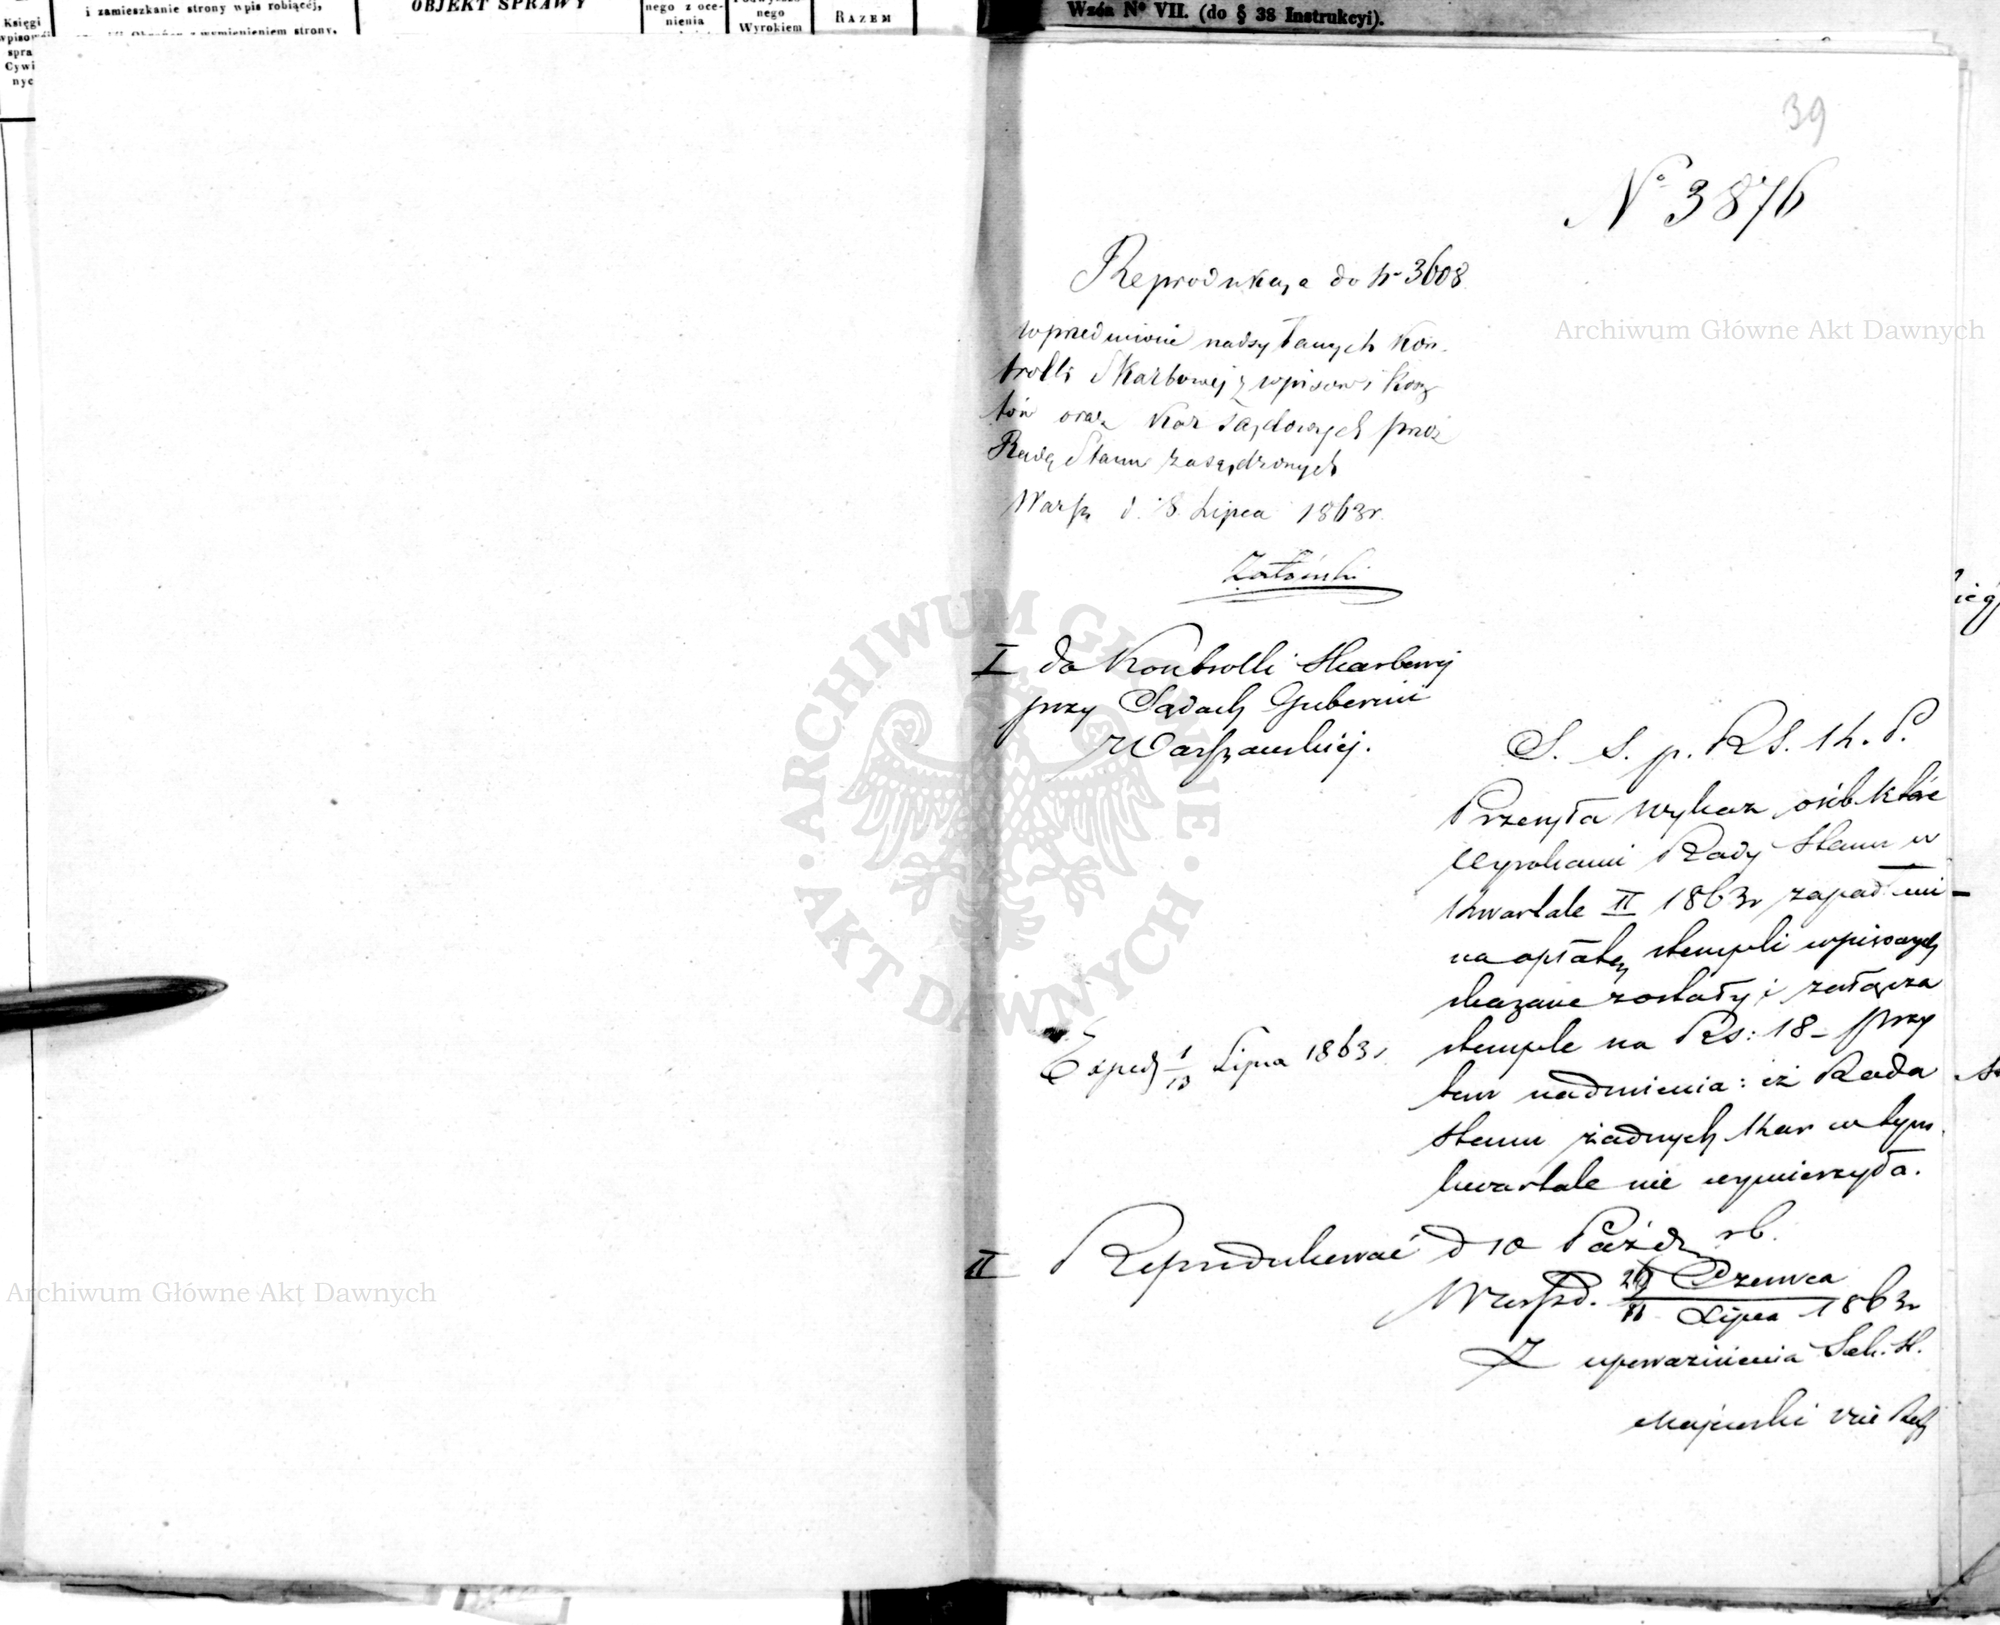 Księgi
wpisowéj
spra
Cywi
nyc
i zamieszkanie strony wpis robiącéj,
OBJEKT SPRAWY
nego z oce-
nienia
nego
Wyrokiem
RAZEM
Wzór Nº VII. (do § 38 Instrukcyi).
39
Nº 3876
Reprodukcya do Nr 3608
w przedmiocie nadsyłanych Kon-
trolli Skarbowej z wpisów i Kosz-
tów oraz Kar Sądowych przez
Radę Stanu zasądzonych
Warsz. d. 8 Lipca 1863 r.
I do Kontrolli Skarbowej
przy Sądach Gubernii
Warszawskiej.
S. S. p. RS. K. P.
Przesyła wykaz osób które
Wyrokami Rady Stanu w
Kwartale II 1863 r zapadłemi
na opłatę stempli wpisowych
skazane zostały i załącza
stemple na Rs: 18 – przy
tem nadmienia: iż Rada
Stanu żadnych Kar w tym
kwartale nie wymierzyła.
Exped. 1/13 Lipca 1863 r.
II Reprodukować d 10 Paźdz. rb.
Warsz d. Czerwca
Lipca 1863 r
Z upoważnienia Sek. St.
Majewski
Archiwum Główne Akt Dawnych
Archiwum Główne Akt Dawnych
ARCHIWUM GŁÓWNE · AKT DAWNYCH ·